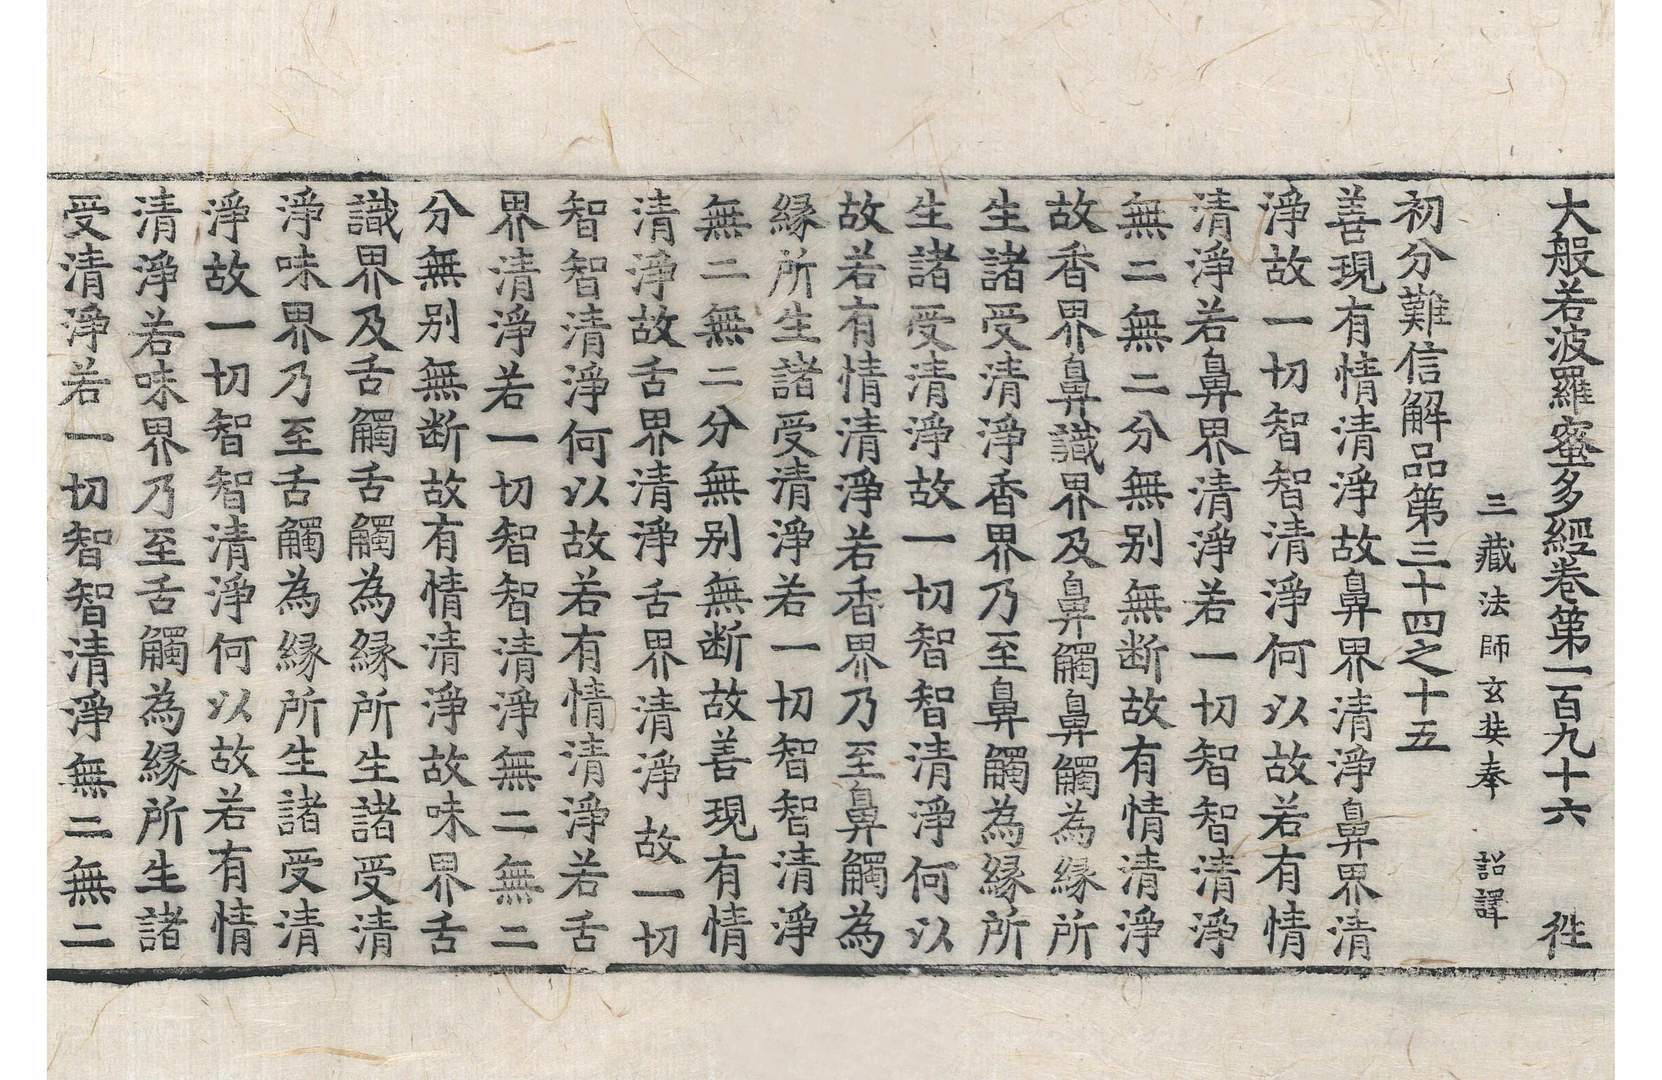 大般若波羅蜜多經卷第一百九十六 徃
三藏法師玄奘奉 詔譯
初分難信解品第三十四之十五
善現有情清淨故鼻界清淨鼻界清
淨故一切智智清淨何以故若有情
清淨若鼻界清淨若一切智智清淨
無二無二分無别無断故有情清淨
故香界鼻識界及鼻觸鼻觸為縁所
生諸受清淨香界乃至鼻觸為縁所
生諸受清淨故一切智智清淨何以
故若有情清淨若香界乃至鼻觸為
縁所生諸受清淨若一切智智清淨
無二無二分無别無断故善現有情
清淨故舌界清淨舌界清淨故一切
智智清淨何以故若有情清淨若舌
界清淨若一切智智清淨無二無二
分無别無断故有情清淨故味界舌
識界及舌觸舌觸為縁所生諸受清
淨味界乃至舌觸為縁所生諸受清
淨故一切智智清淨何以故若有情
清淨若味界乃至舌觸為縁所生諸
受清淨若一切智智清淨無二無二